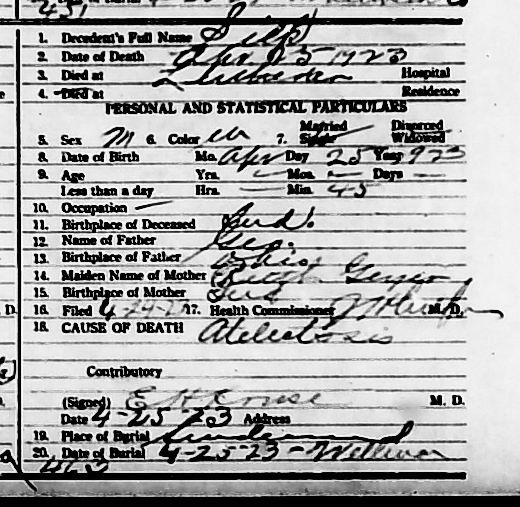 451
1. Decedent's Full Name
2. Date of Death Apr 25 1923
3. Died at Lutheran Hospital
4. Died at Residence
PERSONAL AND STATISTICAL PARTICULARS
5. Sex M 6. Color W 7. Married Single Divorced Widowed
8. Date of Birth Mo. Apr Day 25 Year 923
9. Age Yrs. — Mos. — Days —
Less than a day Hrs. — Min. 45
10. Occupation —
11. Birthplace of Deceased Ind.
12. Name of Father Geo.
13. Birthplace of Father Ohio
14. Maiden Name of Mother Ruth Geyer
15. Birthplace of Mother Ind
16. Filed 4-29-23 17. Health Commissioner M. D.
18. CAUSE OF DEATH Atelectasis
Contributory
(Signed) E H Kruse M. D.
Date 4-25-23 Address
19. Place of Burial Lindenwood
20. Date of Burial 4-25-23 -